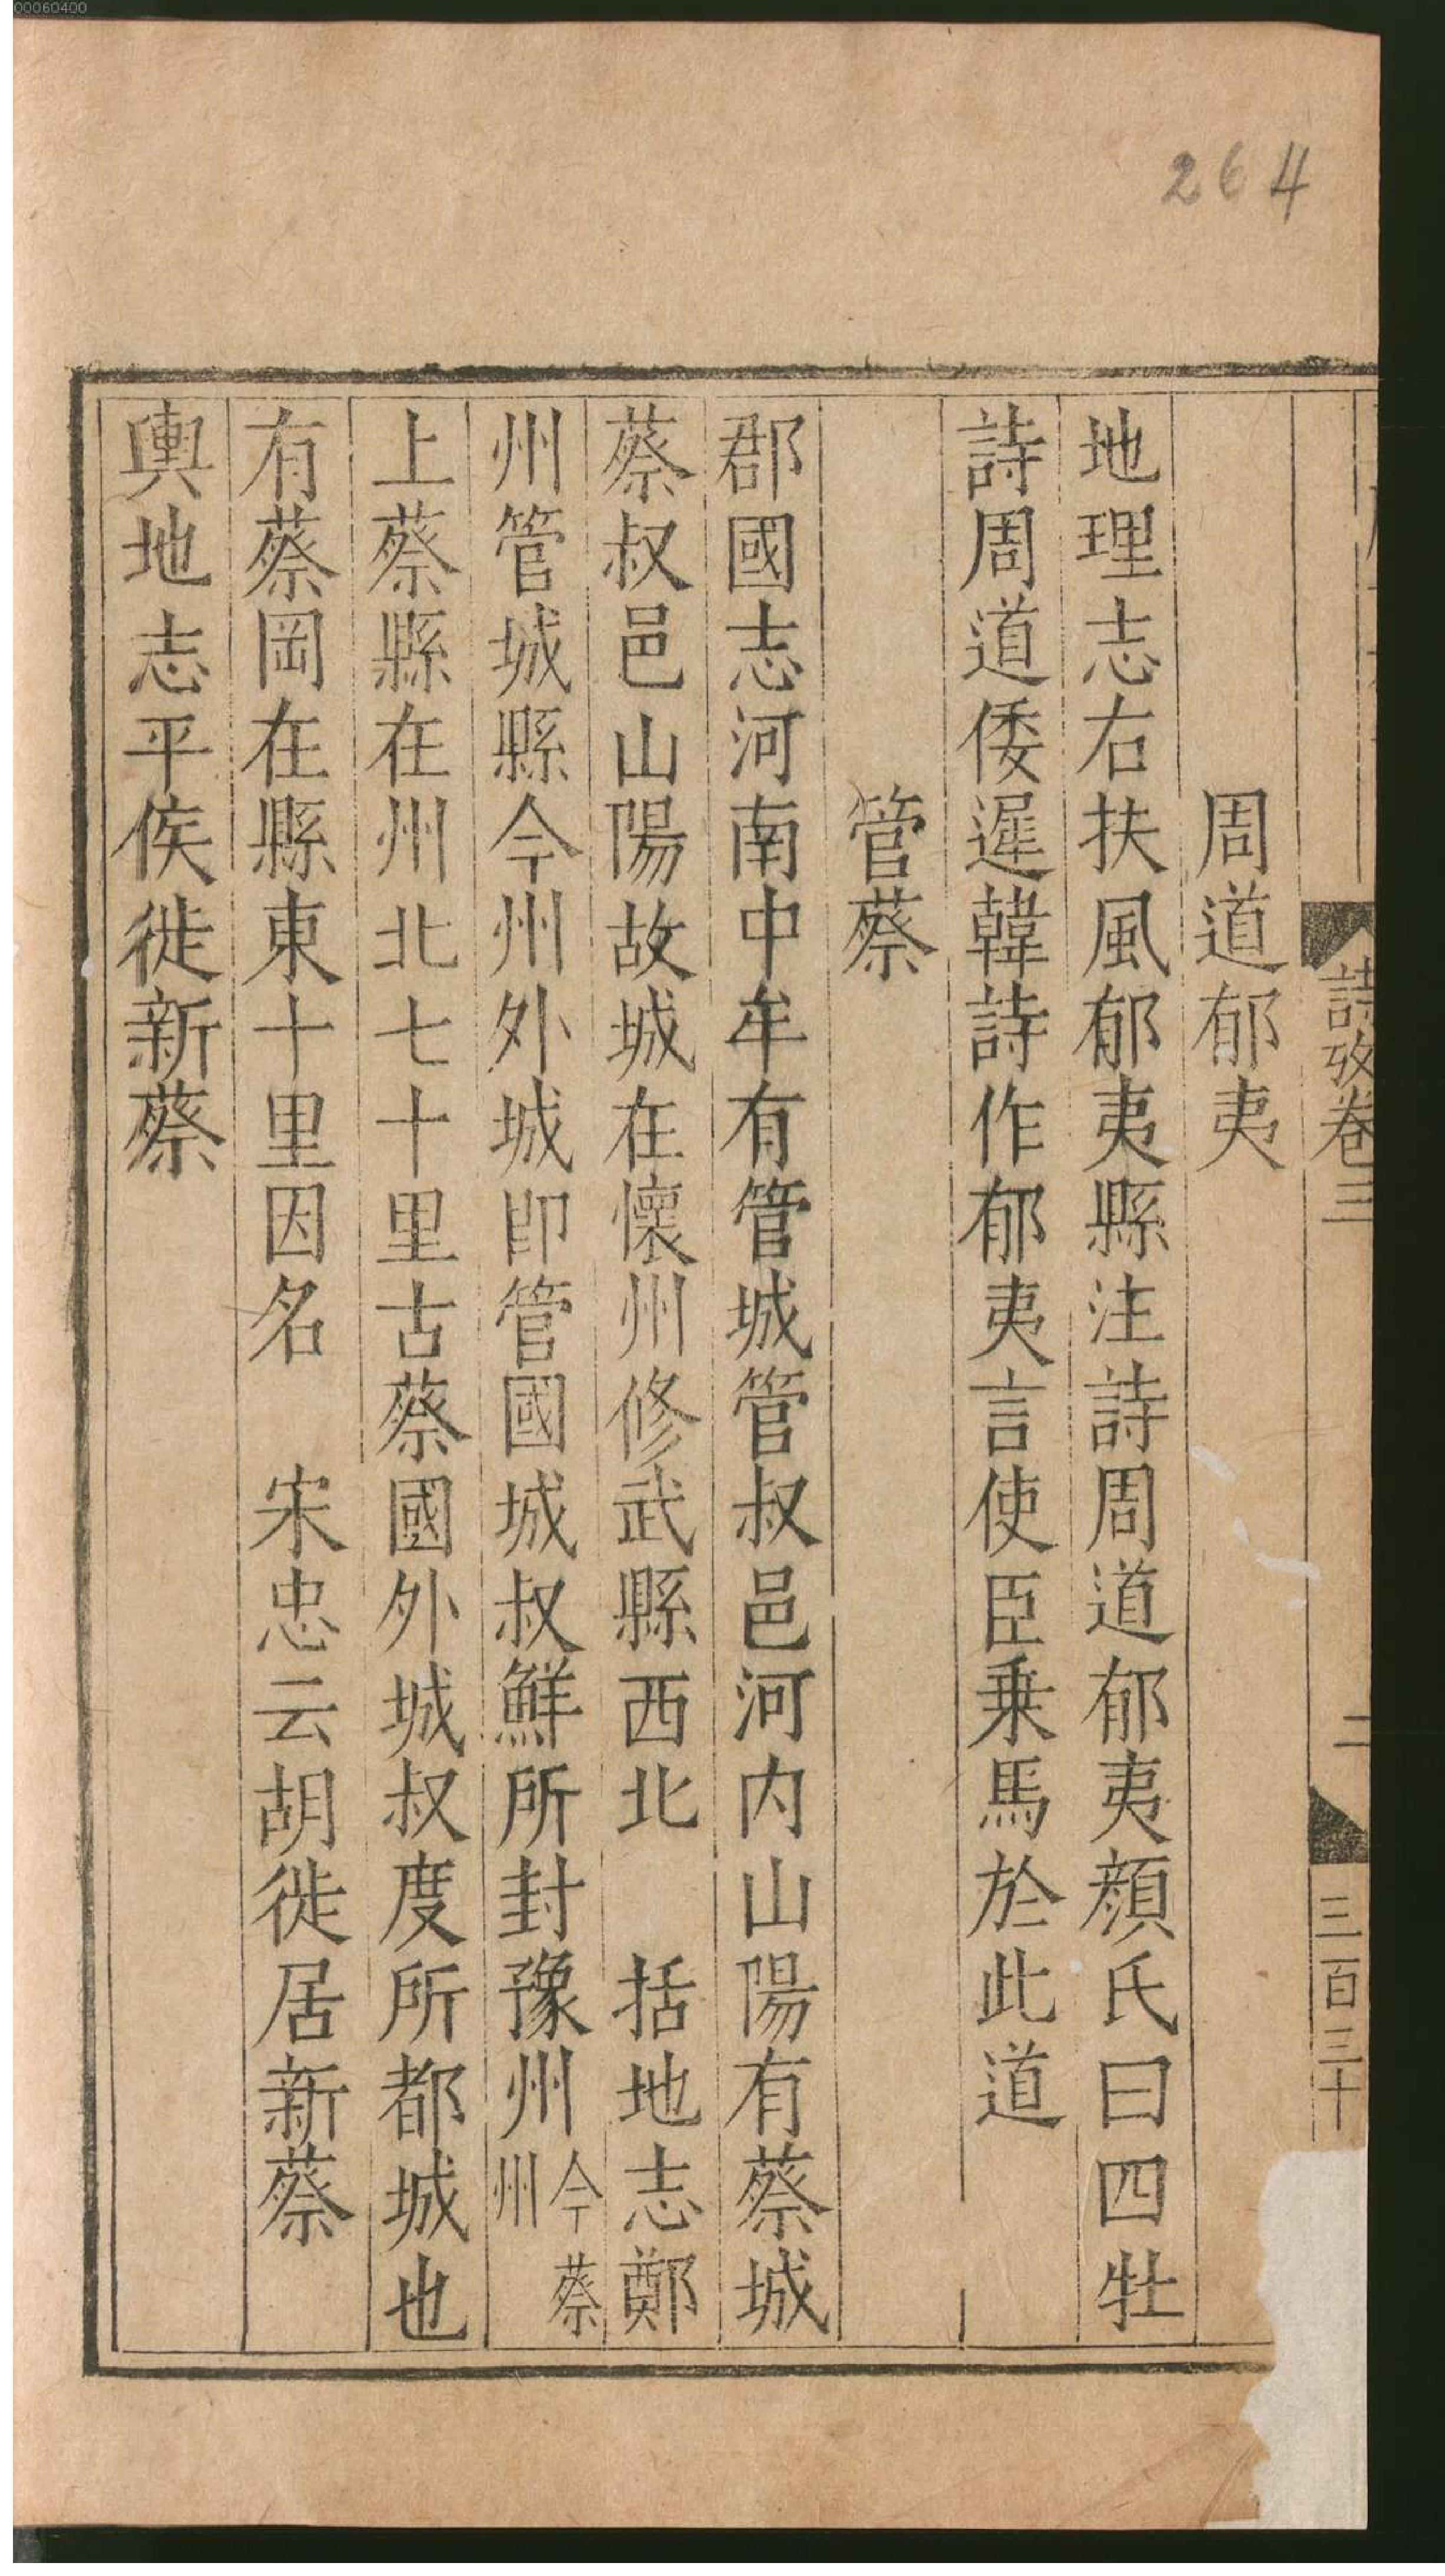 00060400
264
詩攷卷三
二
三百三十
周道郁夷
地理志右扶風郁夷縣注詩周道郁夷顔氏曰四牡
詩周道倭遲韓詩作郁夷言使臣乗馬於此道
管蔡
郡國志河南中牟有管城管叔邑河内山陽有蔡城
蔡叔邑山陽故城在懷州修武縣西北　括地志鄭
州管城縣今州外城即管國城叔鮮所封豫州今蔡州
上蔡縣在州北七十里古蔡國外城叔度所都城也
有蔡岡在縣東十里因名　宋忠云胡徙居新蔡
輿地志平侯徙新蔡